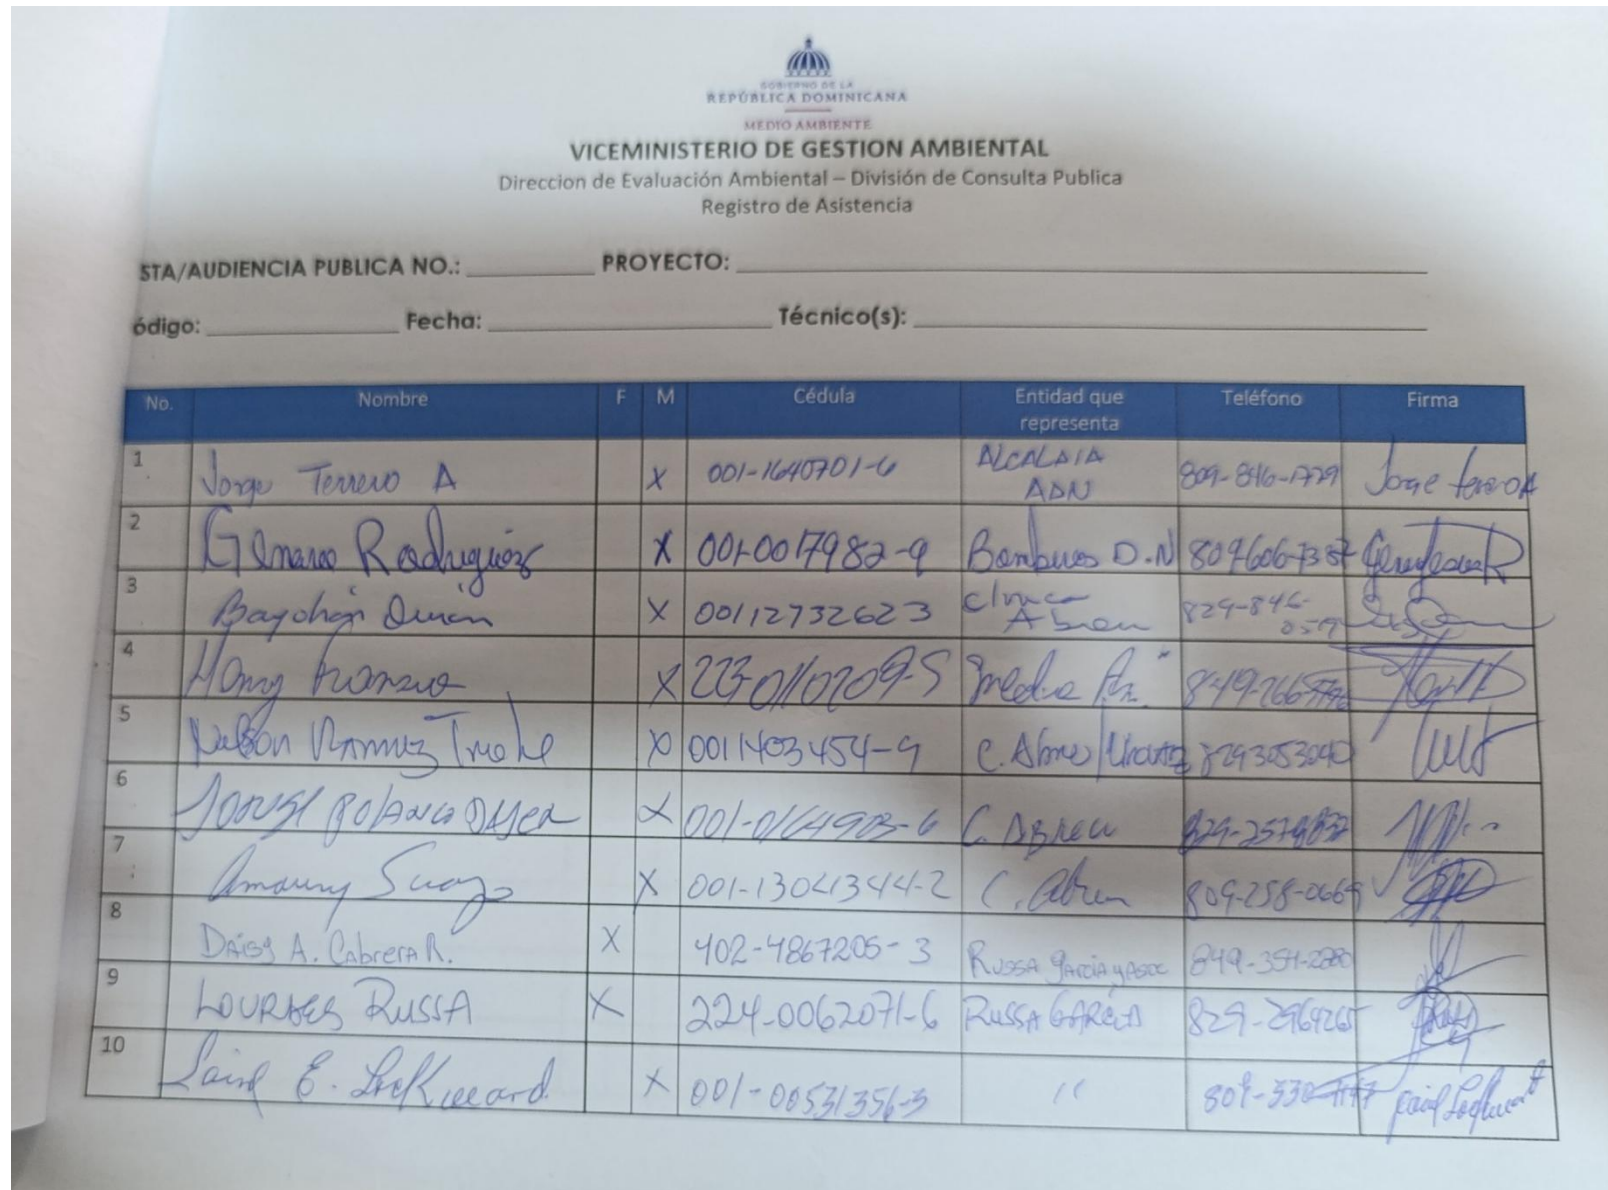 GOBIERNO DE LA
REPÚBLICA DOMINICANA
MEDIO AMBIENTE
VICEMINISTERIO DE GESTION AMBIENTAL
Direccion de Evaluación Ambiental – División de Consulta Publica
Registro de Asistencia
STA/AUDIENCIA PUBLICA NO.: PROYECTO:
ódigo: Fecha: Técnico(s):
No. Nombre F M Cédula Entidad que representa Teléfono Firma
1 Jorge Terrero A X 001-1640701-6 ALCALDIA ADN 809-846-1729 Jorge Terrero A
2 Genaro Rodriguez X 001-0017982-9 Bomberos D.N
3 X 00112732623 Clinica Abreu
4 X
5 Nelson Ramirez X 0011403454-9 C. Abreu 8293053040
6 Polanco X 001-0164903-6 C. Abreu
7 Amaury Suazo X C. Abreu 809-258-0669
8 Daisy A. Cabrera R. X 402-4867205-3 Russa Garcia y Asoc
9 Lourdes Russa X 224-0062071-6 Russa García 829-2964265
10 E. Lockward X 001-00531356-3 "